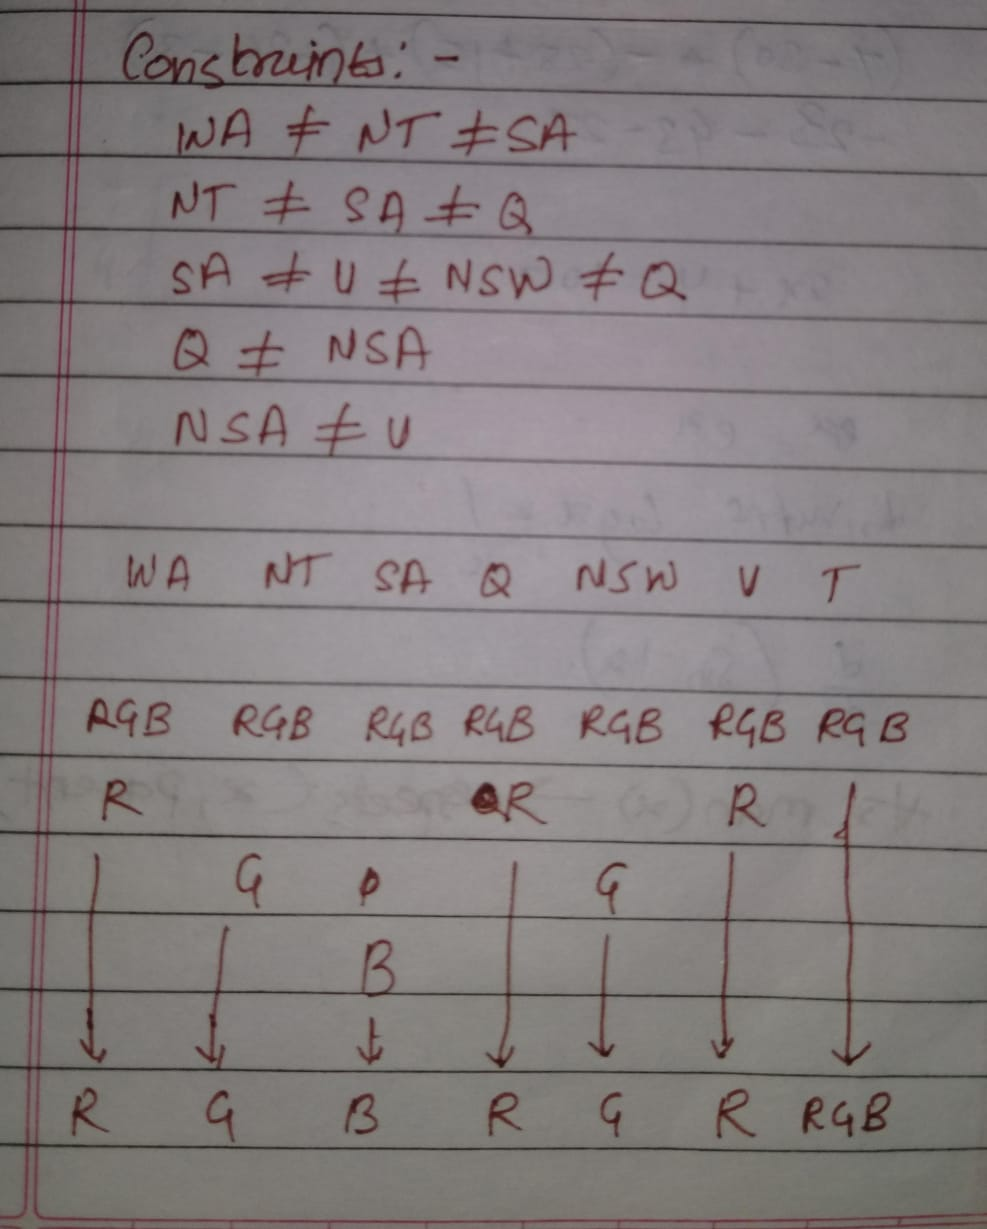 Constraints: -
WA ≠ NT ≠ SA
NT ≠ SA ≠ Q
SA ≠ V ≠ NSW ≠ Q
Q ≠ NSA
NSA ≠ V
WA NT SA Q NSW V T
RGB RGB RGB RGB RGB RGB RGB
R R R
G G
B
R G B R G R RGB